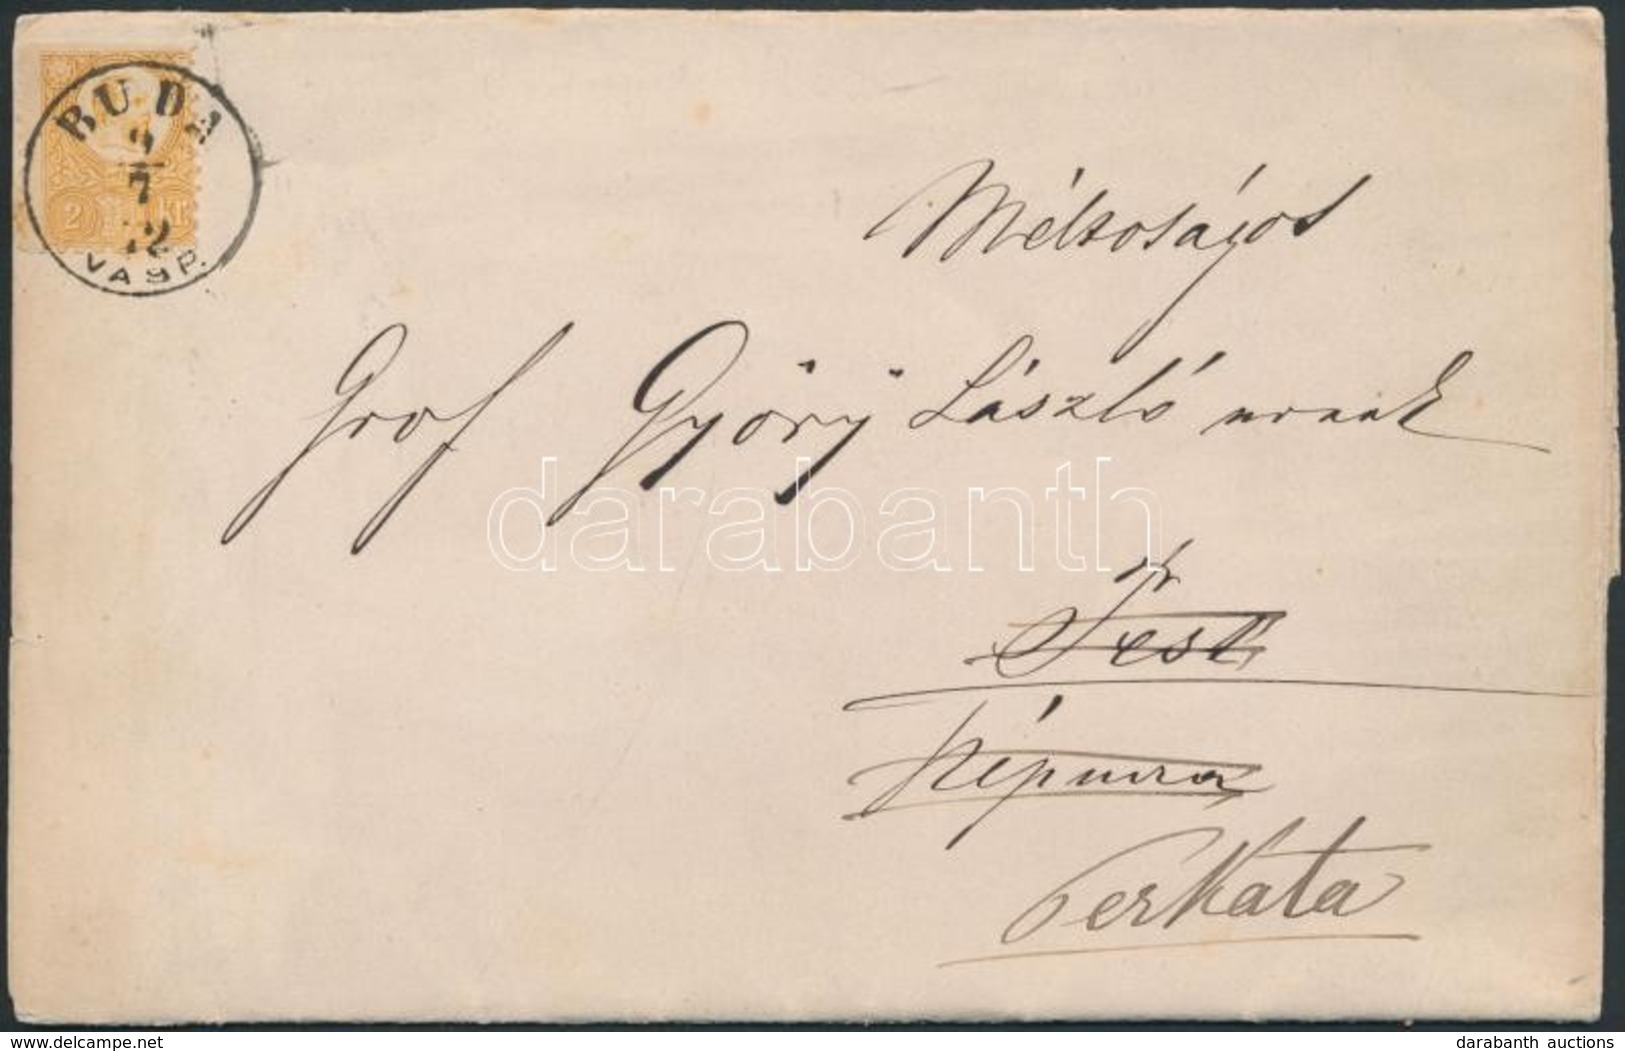 BUDA
9
7
72
VÁSP.
2 KT
Méltoságos
Grof Győry László urnak
Pest
Népmra
Perkáta
darabanth
www.delcampe.net
darabanth auctions